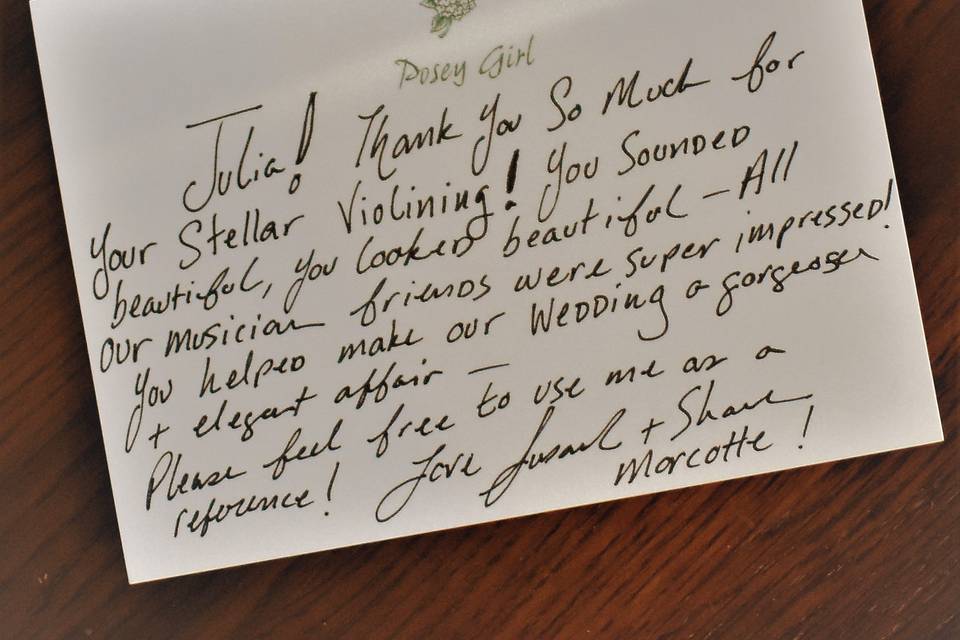 Posey Girl
Julia! Thank You So Much for
Your Stellar Violining! You Sounded
beautiful, you looked beautiful - All
our musician friends were super impressed!
You helped make our wedding a gorgeous
+ elegant affair -
Please feel free to use me as a
reference! Love Susan + Shane
Morcotte!